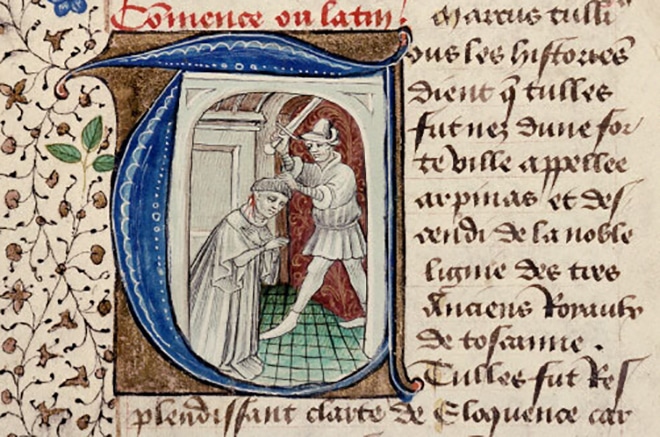 Comence ou latin. Marcus tulliꝰ
Tous les histores
dient q̃ tulles
fut nez dune for
te ville appellee
arpinas et des
cendi de la noble
lignie des tres
Anciens Royaulx
de toscanne .
Tulles fut Res
plendissant clarte de Eloquence car